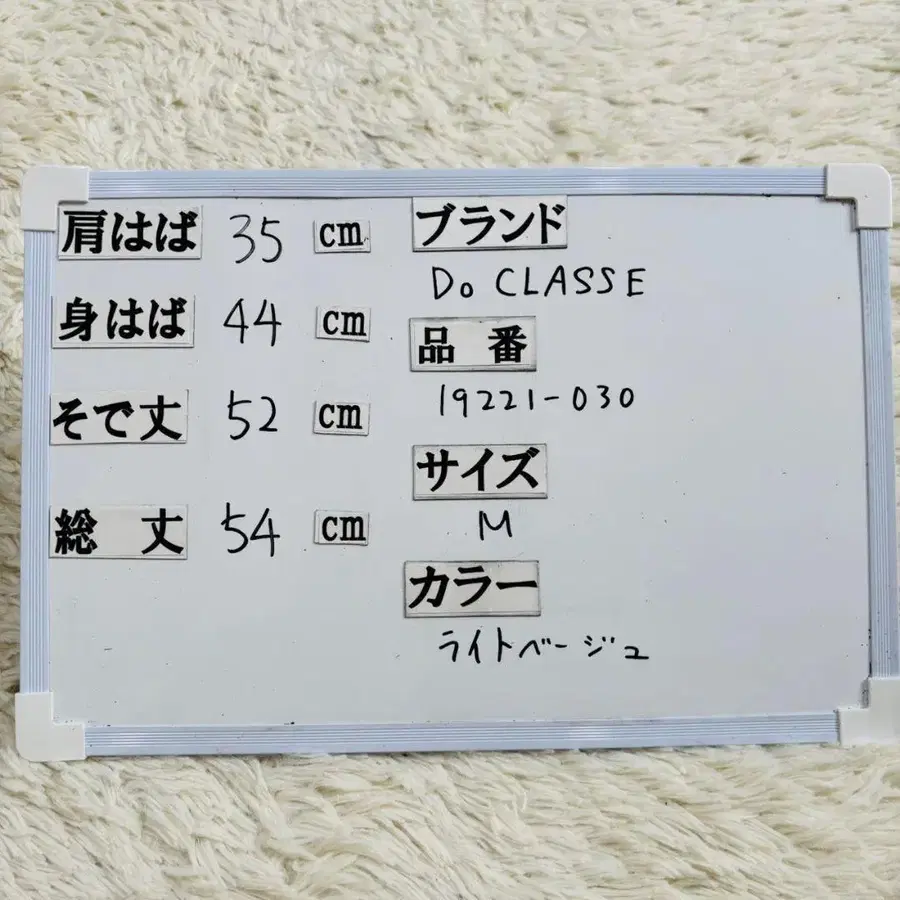 肩はば 35 cm
身はば 44 cm
そで丈 52 cm
総 丈 54 cm
ブランド
Do CLASSE
品 番
19221-030
サイズ
M
カラー
ライトベージュ